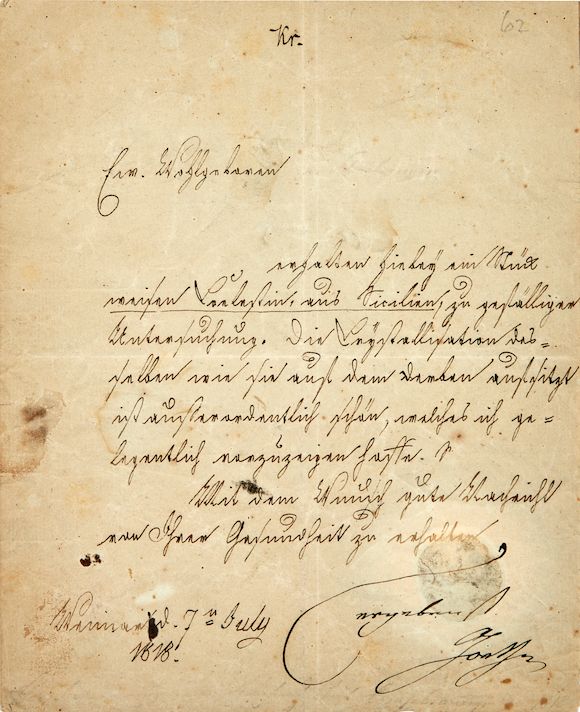 Kr.
62
Ew. Wohlgeboren
erhalten hiebey ein Stück
weisen Coelestin, aus Sicilien, zu gefälliger
Untersuchung. Die Crystallisation des-
selben wie sie auf dem derben aufsitzt
ist ausserordentlich schön, welches ich ge-
legentlich vorzuzeigen hoffe.
Mit dem Wunsch gute Nachricht
von Ihrer Gesundheit zu erhalten
ergebenst
Weimar d. 7n July
Goethe
1818.